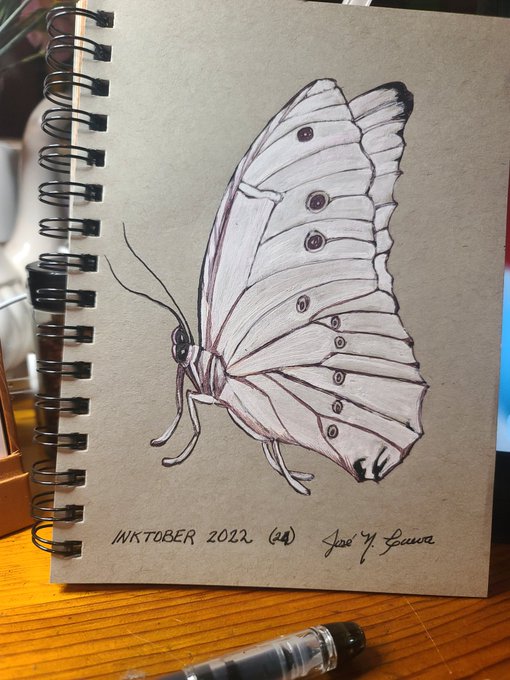 INKTOBER 2022 (24) José N. Cueva